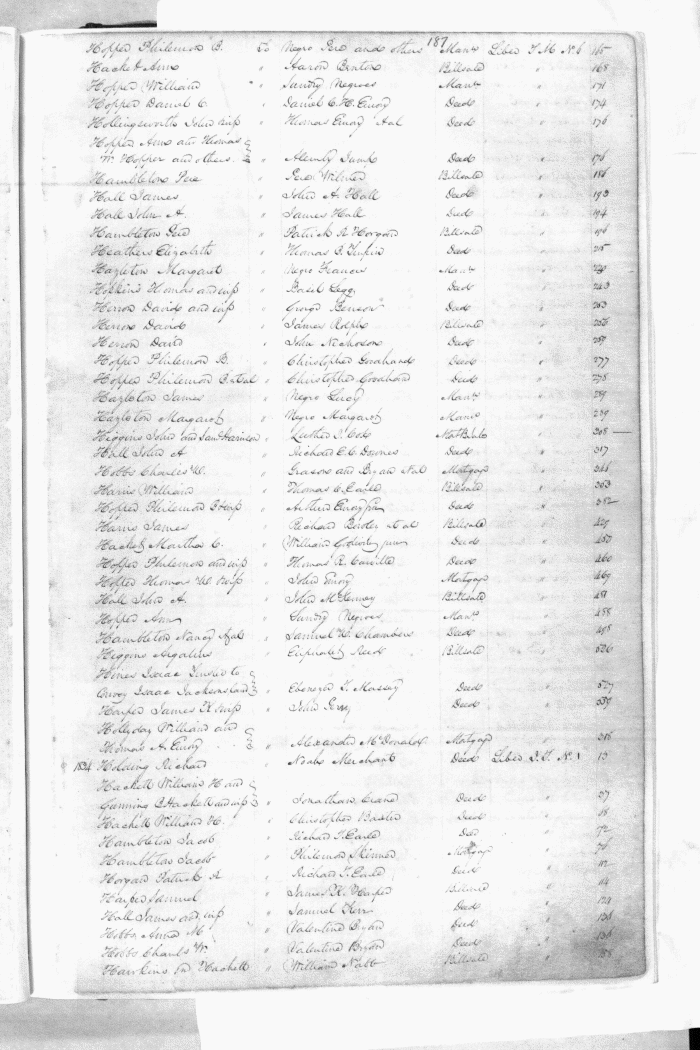 187
Hopper Philemon B. To Negro Pere and others Manu Liber T M No 6 165
Hacket Ann " Aaron Benton Billsale " 168
Hopper William " Sundry Negroes Manu " 171
Hopper Daniel C " Daniel C. H. Emory Deed " 174
Hollingsworth John & wife " Thomas Emory &al Deed " 176
Hopper Ann and Thomas
W. Hopper and others " Deed " 176
Hambleton Pere " Pere Wilmer Billsale " 186
Hall James " John A. Hall Deed " 193
Hall John A. " James Hall Deed " 194
Hambleton Pere " Patrick A Horgon Billsale " 196
Heathers Elizabeth " Thomas C. Turpin Deed " 215
Hazleton Margaret " Negro Frances Manu " 220
Hopkins Thomas and wife " Basil Legg Deed " 243
Herron David and wife " George Benson Deed " 253
Herron David " James Rolph Billsale " 256
Herron David " John Nicholson Deed " 257
Hopper Philemon B. " Christopher Goodhand Deed " 277
Hopper Philemon B et al " Christopher Goodhand Deed " 278
Hazleton James " Negro Leroy Manu " 289
Hazleton Margaret " Negro Margaret Manu " 289
Higgins John and Saml Harrison " Luther J. Cox " 308
Hall John A " Richard E. C. Downes Deed " 317
Hobbs Charles W. " Grason and Bryan &al Mortgage " 344
Harris William " Thomas C. Earle Billsale " 353
Hopper Philemon B & wife " Arthur Emory jun Deed " 382
Harris James " Richard Border et al Billsale " 429
Hackett Martha C. " William Godwin junr Deed " 457
Hopper Philemon and wife " Thomas R. Carville Deed " 460
Hopper Thomas W. & wife " John Emory Mortgage " 469
Hall John A. " John McKenney Billsale " 481
Hopper Ann " Sundry Negroes Manu " 488
Hambleton Nancy &al " Samuel W. Chambers Deed " 498
Higgins " Reed Billsale " 526
Hines Isaac
Isaac Jackson " Ebenezer T. Massey Deed " 527
Harper James K & wife " John Deed " 539
Hollyday William and
Thomas A. Emory " Alexander McDonald Mortgage " 515
1834 Holding Richard " Noah Merchant Deed Liber J. T. No 1 13
Hackett William H and
Gunning B Hackett and wife " Jonathan Crane Deed " 37
Hackett William H. " Christopher Deed " 58
Hambleton Jacob " Richard T. Earle Deed " 72
Hambleton Jacob " Philemon Skinner Mortgage " 76
Horgon Patrick A " Richard T. Earle Deed " 112
Harper Samuel " James K. Harper Billsale " 114
Hall James and wife " Samuel Kerr Deed " 124
Hobbs Anna M. " Valentine Bryan Deed " 134
Hobbs Charles W. " Valentine Bryan Deed " 136
Hawkins Hackett " William Nabb Billsale "